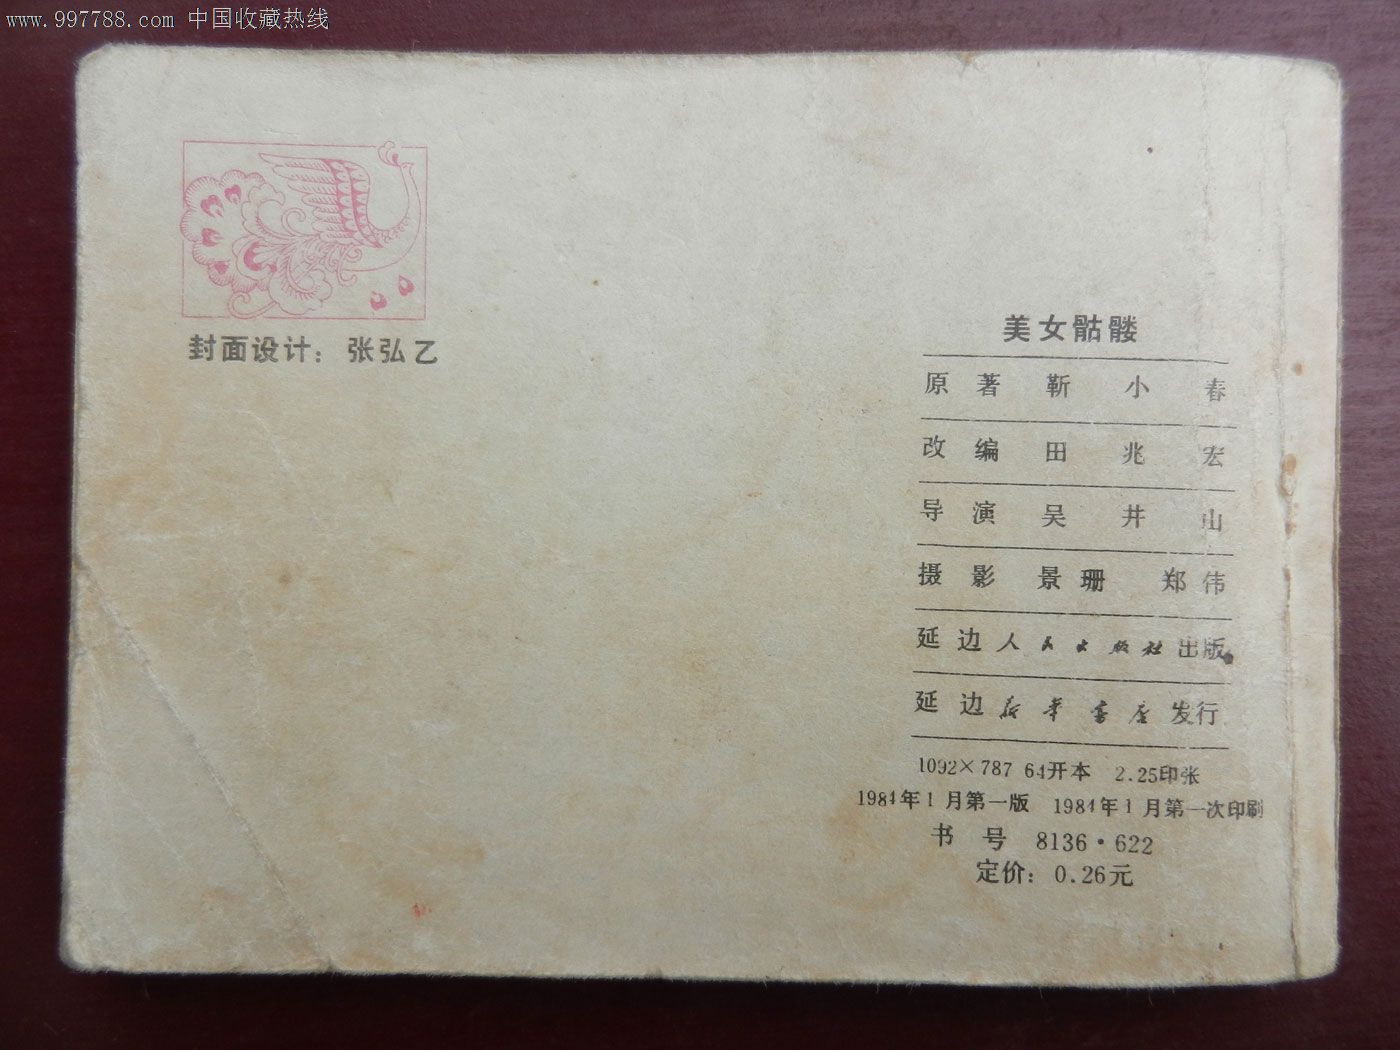 www.997788.com 中国收藏热线
封面设计：张弘乙
美女骷髅
原著 靳小春
改编 田兆宏
导演 吴井山
摄影 景珊 郑伟
延边人民出版社出版
延边新华书店发行
1092×787 64开本 2.25印张
1984年1月第一版 1984年1月第一次印刷
书号 8136·622
定价：0.26元